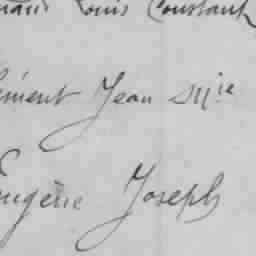 Louis Constant
Clément Jean M.ie
Eugène Joseph